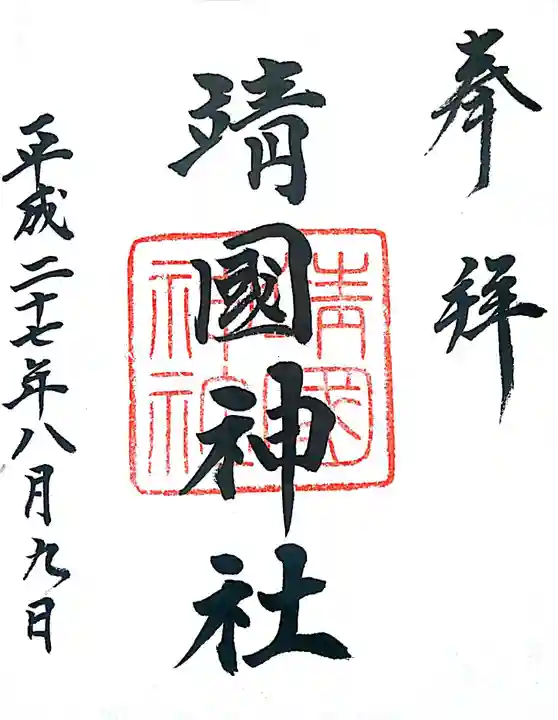 奉拝
靖國神社
靖國神社
平成二十七年八月九日